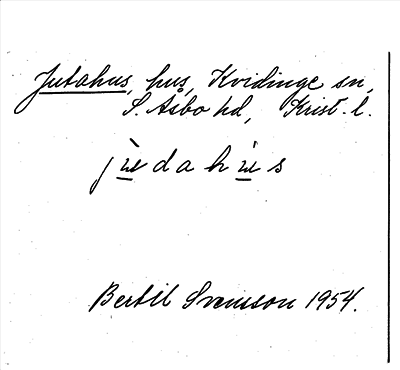 Jutahus, hus, Kvidinge sn,
S. Åsbo hd, Krist. l.
jùdahùs
Bertil Svensson 1954.